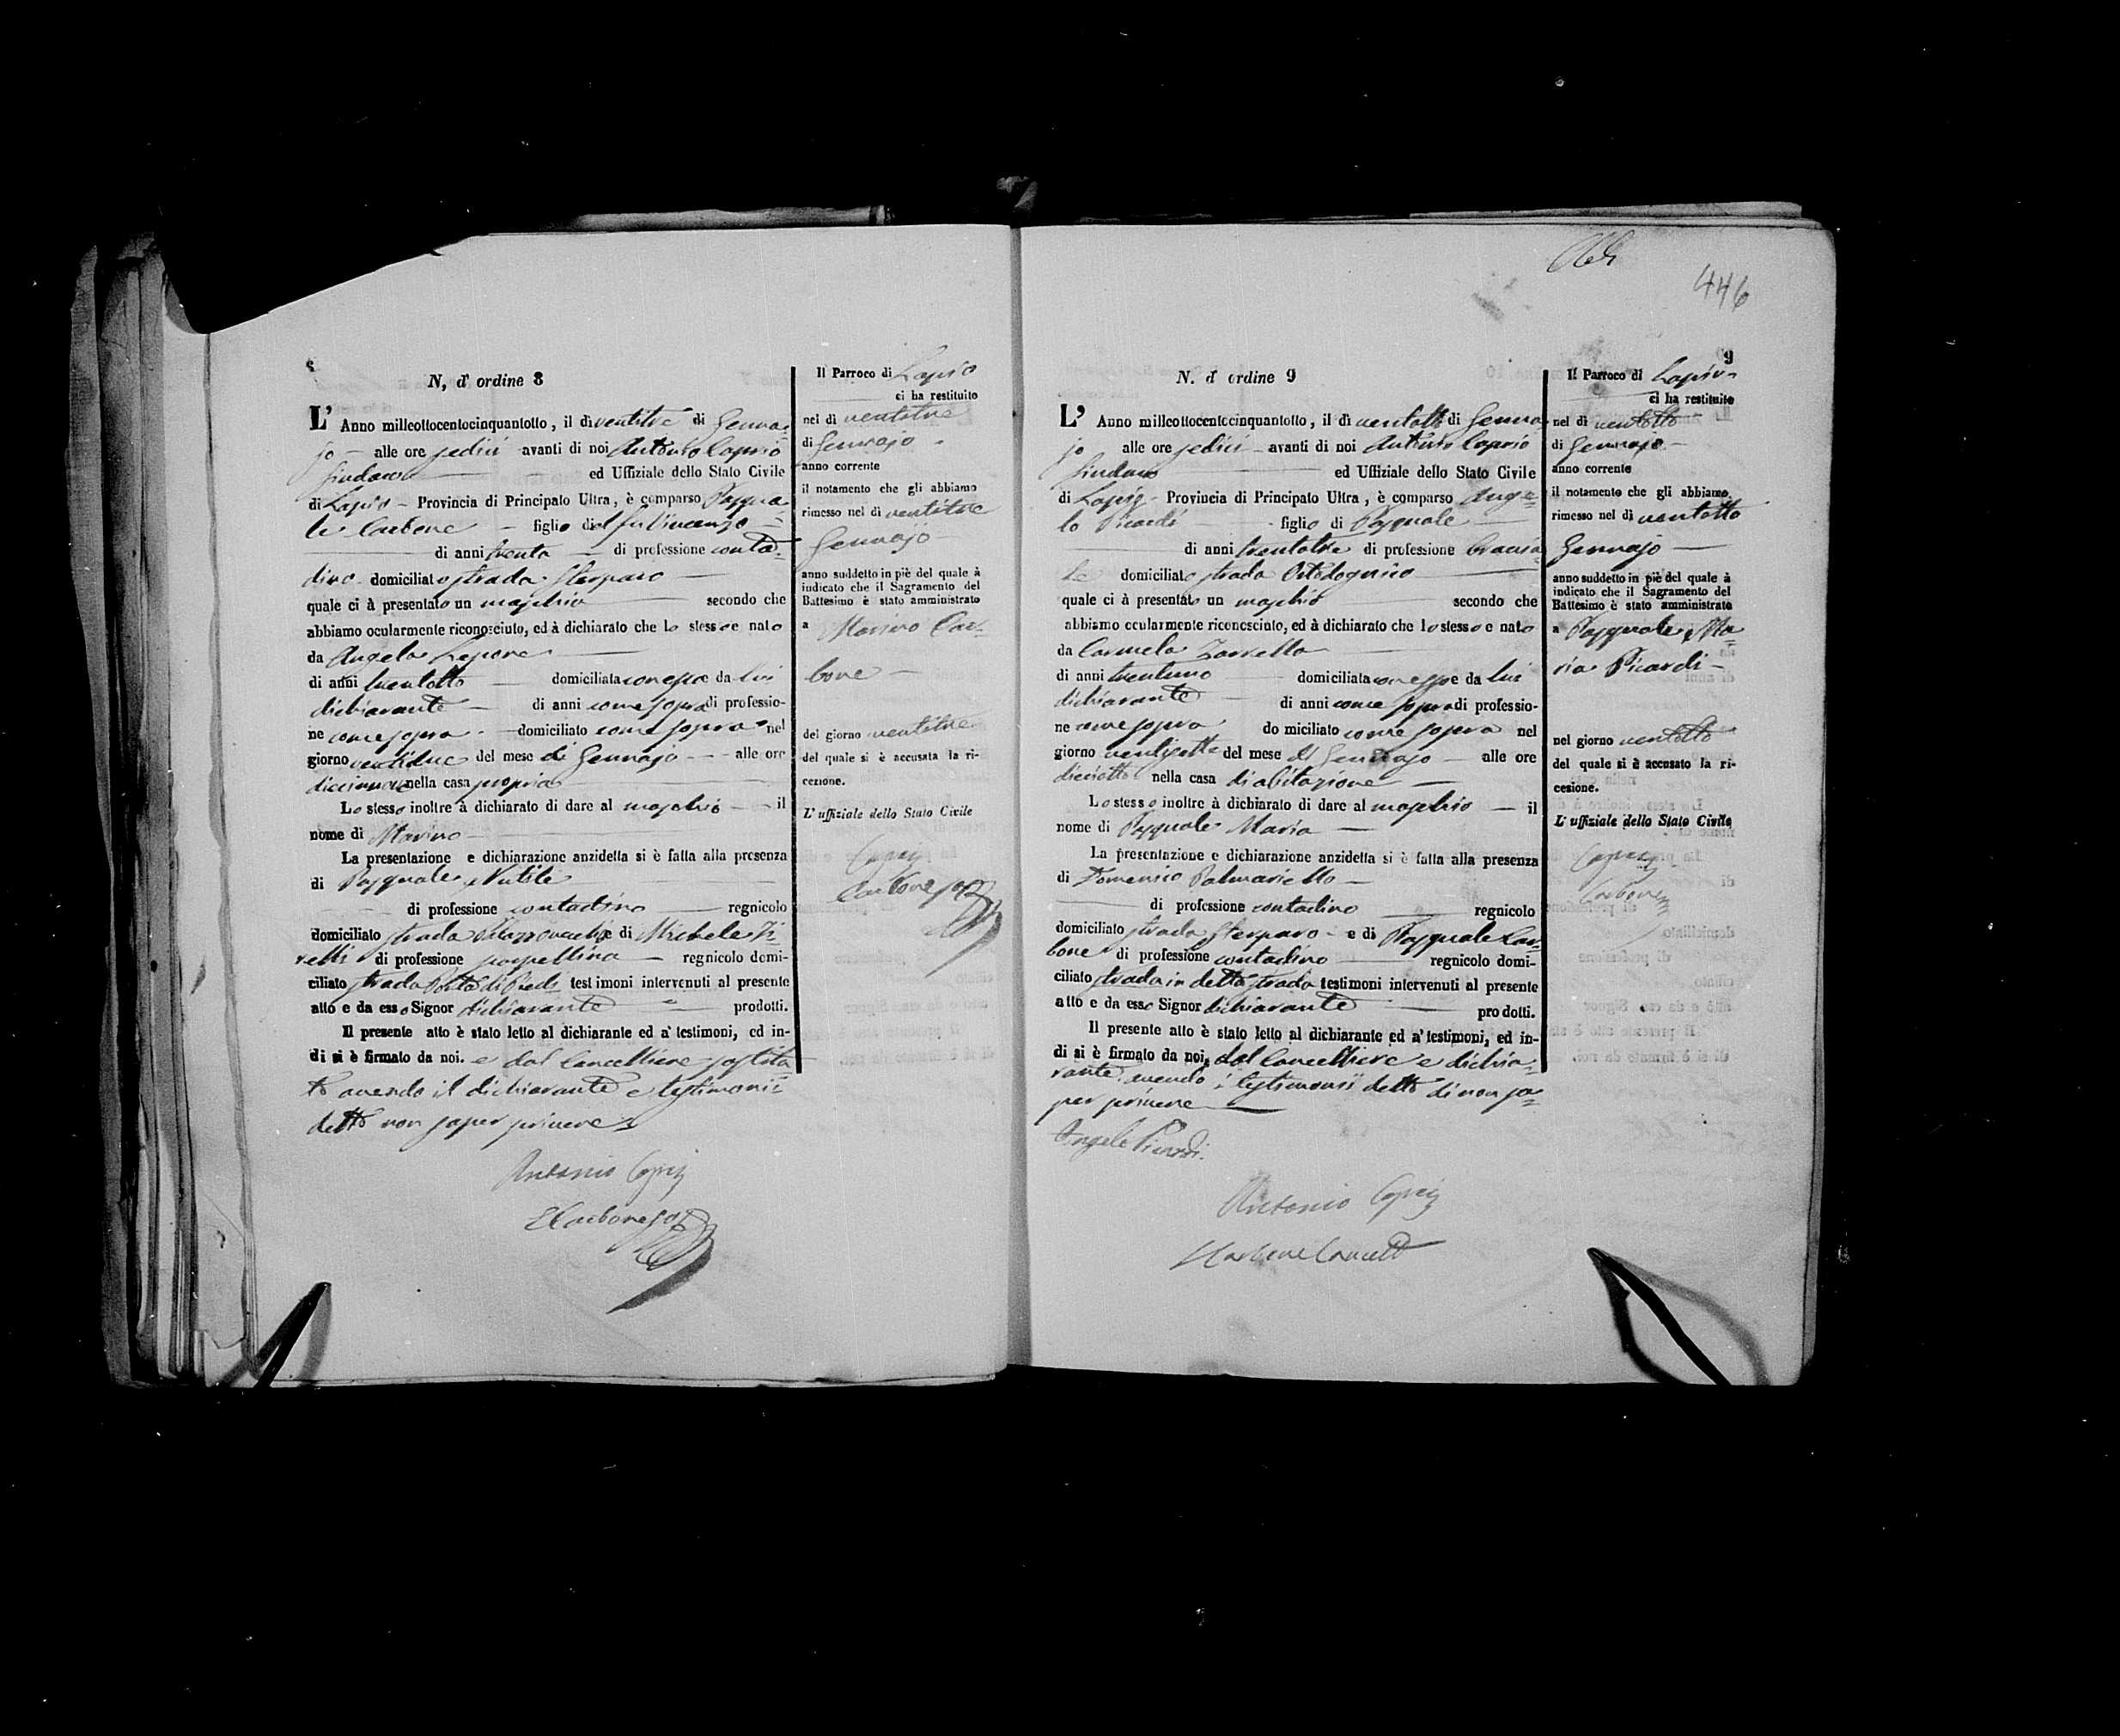 8
N, d' ordine 8
L' Anno milleottocentocinquantotto, il di ventitre di Genna-
jo alle ore sedici avanti di noi Antonio Caprio
Sindaco ed Uffiziale dello Stato Civile
di Lapio Provincia di Principato Ultra, è comparso Pasqua-
le Carbone figlio del fu Vincenzo
di anni trenta di professione conta-
dino domiciliato strada Sterparo
quale ci à presentato un maschio secondo che
abbiamo ocularmente riconosciuto, ed à dichiarato che lo stesso e nato
da Angela Lepore
di anni trentotto domiciliata con esso e da lui
dichiarante di anni come sopra di professio-
ne come sopra domiciliato come sopra nel
giorno ventidue del mese di Gennajo alle ore
diecinove nella casa propria
Lo stesso inoltre à dichiarato di dare al maschio il
nome di Marino
La presentazione e dichiarazione anzidetta si è fatta alla presenza
di Pasquale
di professione contadino regnicolo
domiciliato strada e di Michele
di professione scarpellino regnicolo domi-
ciliato strada Porta di testimoni intervenuti al presente
atto e da esso Signor dichiarante prodotti.
Il presente atto è stato letto al dichiarante ed a' testimoni, ed in-
di si è firmato da noi. e dal Cancelliere sostitu-
to avendo il dichiarante e testimonii
detto non saper scrivere
Antonio Caprio
Carbone
Il Parroco di Lapio
ci ha restituito
nel di ventitre
di Gennajo
anno corrente
il notamento che gli abbiamo
rimesso nel di ventitre
Gennajo
anno suddetto in piè del quale à
indicato che il Sagramento del
Battesimo è stato amministrato
a Marino Car-
bone
del giorno ventitre
del quale si è accusata la ri-
cezione.
L' uffiziale dello Stato Civile
Caprio
Carbone
446
9
N. d' ordine 9
L' Anno milleottocentocinquantotto, il di ventotto di Genna-
jo alle ore sedici avanti di noi Antonio Caprio
Sindaco ed Uffiziale dello Stato Civile
di Lapio Provincia di Principato Ultra, è comparso Ange-
lo Picardi figlio di Pasquale
di anni trentatre di professione braccia-
le domiciliato strada
quale ci à presentato un maschio secondo che
abbiamo ocularmente riconosciuto, ed à dichiarato che lo stesso e nato
da Carmela Zarrella
di anni trentuno domiciliata con esso e da lui
dichiarante di anni come sopra di professio-
ne come sopra domiciliato come sopra nel
giorno ventisette del mese di Gennajo alle ore
dieciotto nella casa di abitazione
Lo stesso inoltre à dichiarato di dare al maschio il
nome di Pasquale Maria
La presentazione e dichiarazione anzidetta si è fatta alla presenza
di Domenico Palmariello
di professione contadino regnicolo
domiciliato strada Sterparo e di Pasquale Car-
bone di professione contadino regnicolo domi-
ciliato strada in detta strada testimoni intervenuti al presente
atto e da esso Signor dichiarante prodotti.
Il presente atto è stato letto al dichiarante ed a' testimoni, ed in-
di si è firmato da noi, dal Cancelliere e dichia-
rante avendo i testimonii detto di non sa-
per scrivere
Angelo Picardi
Antonio Caprio
Carbone Cancell
Il Parroco di Lapio
ci ha restituito
nel di ventotto
di Gennajo
anno corrente
il notamento che gli abbiamo
rimesso nel di ventotto
Gennajo
anno suddetto in piè del quale à
indicato che il Sagramento del
Battesimo è stato amministrato
a Pasquale Ma-
ria Picardi
nel giorno ventotto
del quale si è accusato la ri-
cesione.
L' uffiziale dello Stato Civile
Caprio
Carbone